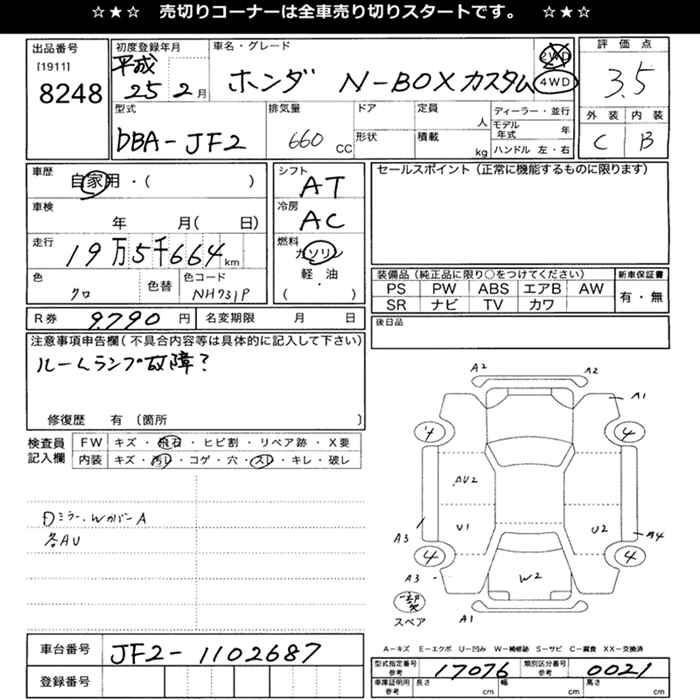 ☆★☆　売切りコーナーは全車売り切りスタートです。　☆★☆
出品番号
[1911]
8248
初度登録年月
平成
25 2月
車名・グレード
ホンダ N-BOXカスタム
2WD
4WD
評価点
3.5
外装 内装
C B
型式
DBA-JF2
排気量
660 CC
ドア
形状
定員
人
積載
kg
ディーラー・並行
モデル年式 年
ハンドル 左・右
車歴
自家用・( )
車検
年 月( 日)
走行
19万5千664km
色
クロ
色替
色コード
NH731P
シフト
AT
冷房
AC
燃料
ガソリン
軽・油
・
( )
セールスポイント（正常に機能するものに限ります）
装備品（純正品に限り○をつけてください）
新車保証書
PS PW ABS エアB AW
SR ナビ TV カワ
有・無
R券 9.790 円
名変期限 月 日
後日品
注意事項申告欄(不具合内容等は具体的に記入して下さい)
ルームランプ故障?
修復歴 有 〔箇所 〕
検査員
記入欄
FW キズ・飛石・ヒビ割・リペア跡・X要
内装 キズ・汚レ・コゲ・穴・スレ・キレ・破レ
Dミラー、WカバーA
各AU
A2 A2
A1
4 4
AU2
U1 U2
A3 A4
4 4
A3
W2
スペア
A1
A−キズ E−エクボ U−凹み W−補修跡 S−サビ C−腐食 XX−交換済
車台番号 JF2-1102687
登録番号
型式指定番号
参考
17076
類別区分番号
参考
0021
車庫証明用
参考
長さ cm
幅 cm
高さ cm